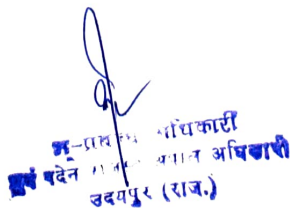 भू-प्रबन्ध अधिकारी
एवं पदेन अधिकारी
उदयपुर (राज.)